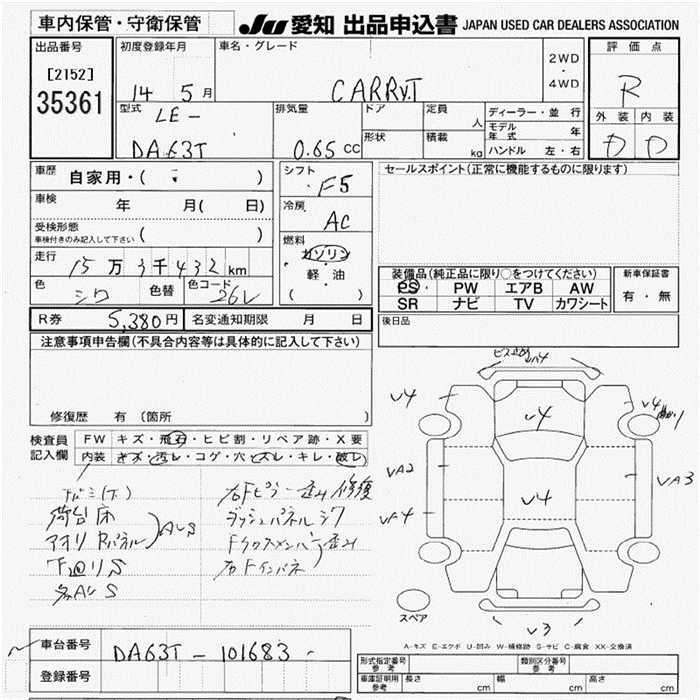 車内保管・守衛保管
JU 愛知 出品申込書 JAPAN USED CAR DEALERS ASSOCIATION
出品番号
[2152]
35361
初度登録年月
14 5 月
車名・グレード
CARRY.T
2WD
・
4WD
評価点
R
外装 内装
D D
型式
LE-
DA63T
排気量
0.65 cc
ドア
形状
定員
人
積載
kg
ディーラー・並行
モデル年式 年
ハンドル 左・右
車歴
自家用・( )
車検
年 月( 日)
受検形態
車検付きのみ記入して下さい ( )
走行
15 万 3 千 432 km
色
シロ
色替
色コード
26U
シフト
F5
冷房
AC
燃料
ガソリン
軽・油
( )
セールスポイント(正常に機能するものに限ります)
装備品(純正品に限り○をつけてください)
PS PW エアB AW
SR ナビ TV カワシート
新車保証書
有・無
R券 5,380 円 名変通知期限 月 日
後日品
注意事項申告欄(不具合内容等は具体的に記入して下さい)
修復歴 有 (箇所 )
検査員
記入欄
FW キズ・飛石・ヒビ割・リペア跡・X要
内装 キズ・汚レ・コゲ・穴・スレ・キレ・破レ
荷台床
アオリ Rパネル
AUS
下回リS
多AUS
右Fピラー歪み修復
ダッシュパネルシワ
Fクロスメンバー歪み
右Fインパネ
V4
V4
V4
V4
VA2
VA3
V4
V3
スペア
A-キズ E-エクボ U-凹み W-補修跡 S-サビ C-腐食 XX-交換済
車台番号
DA63T-101683
登録番号
形式指定番号
参考
類別区分番号
参考
車庫証明用
参考
長さ cm 幅 cm 高さ cm